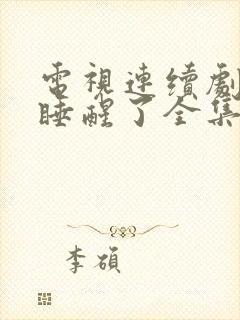 電視連續劇
睡醒了全集
李碩